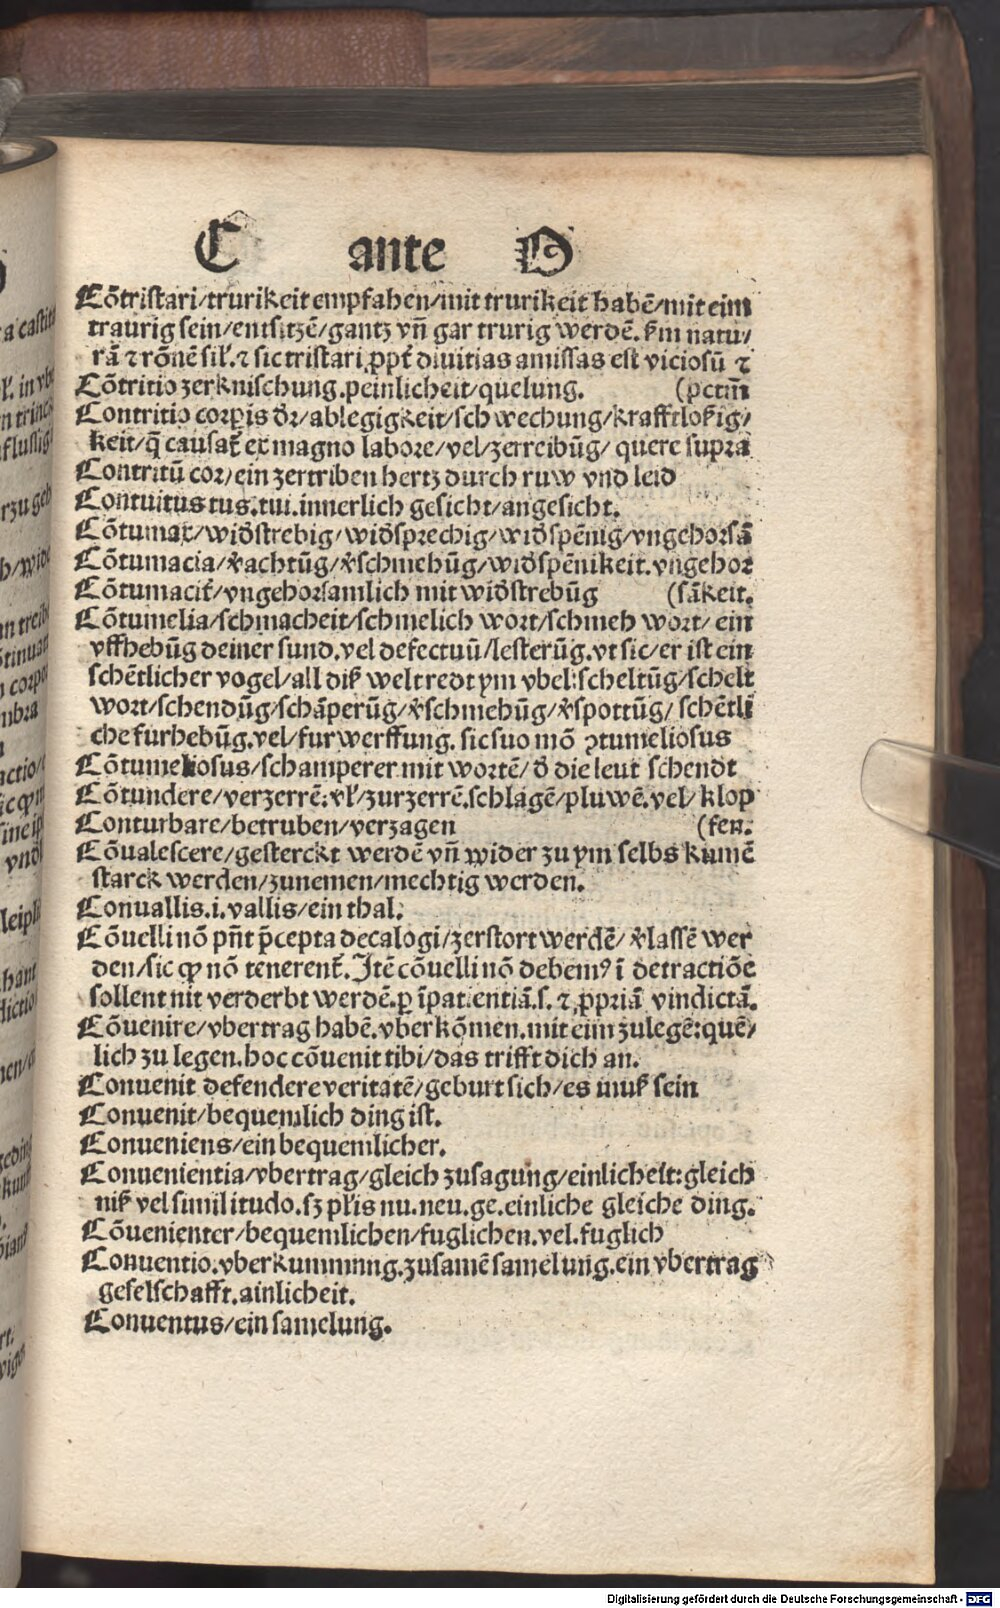 C ante O
Cõtristari/trurikeit empfahen/mit trurikeit habẽ/mit eim
traurig sein/entsitzẽ/gantz vñ gar trurig werdẽ. ẜm natu/
rã ⁊ rõnẽ sił. ⁊ sic tristari ꝓpt̃ diuitias amissas est viciosũ ⁊
Cõtritio zerknischung.peinlicheit/quelung. (pctm̃
Contritio corꝑis dr̃/ablegigkeit/schwechung/krafftloßig/
keit/q̃ causat̃ ex magno labore/vel/zerreibũg/ quere supra
Contritũ cor/ein zertriben hertz durch ruw vnd leid
Contuitus tus.tui.innerlich gesicht/angesicht.
Cõtumax/wid̃strebig/wid̃sprechig/wid̃spẽnig/vngehorsã
Cõtumacia/v̾achtũg/v̾schmehũg/wid̃spẽnikeit.vngehor
Cõtumacit̃/vngehorsamlich mit wid̃strebũg (sãkeit.
Cõtumelia/schmacheit/schmelich wort/schmeh wort/ ein
vffhebũg deiner sund.vel defectuũ/lesterũg.vt sic/er ist ein
schẽtlicher vogel/all diß welt redt ym vbel:scheltũg/schelt
wort/schendũg/schãperũg/v̾schmehũg/v̾spottũg/ schẽtli
che furhebũg.vel/furwerffung. sic suo mõ ꝯtumeliosus
Cõtumeliosus/schamperer mit wortẽ/d̃ die leut schendt
Cõtundere/verzerrẽ:vł/zurzerrẽ.schlagẽ/pluwẽ.vel/klop
Conturbare/betruben/verzagen (fen.
Cõualescere/gesterckt werdẽ vñ wider zu ym selbs kumẽ
starck werden/zunemen/mechtig werden.
Conuallis.i.vallis/ein thal.
Cõuelli nõ pñt p̃cepta decalogi/zerstort werdẽ/ v̾lassẽ wer
den/sic ꝙ nõ tenerent̃. Itẽ cõuelli nõ debemꝰ ĩ detractiõe
sollent nit verderbt werdẽ.ꝑ ĩpatientiã.s. ⁊ ꝓpriã vindictã.
Cõuenire/vbertrag habẽ.vberkõmen.mit eim zulegẽ:quẽ/
lich zu legen.hoc cõuenit tibi/das trifft dich an.
Conuenit defendere veritatẽ/geburt sich/es muß sein
Conuenit/bequemlich ding ist.
Conueniens/ein bequemlicher.
Conuenientia/vbertrag/gleich zusagung/einlicheit:gleich
niß vel similitudo.sꝫ płis nu.neu.ge.einliche gleiche ding.
Cõuenienter/bequemlichen/fuglichen.vel.fuglich
Conuentio.vberkummung.zusamẽ samelung.ein vbertrag
geselschafft.ainlicheit.
Conuentus/ein samelung.
Digitalisierung gefördert durch die Deutsche Forschungsgemeinschaft - DFG